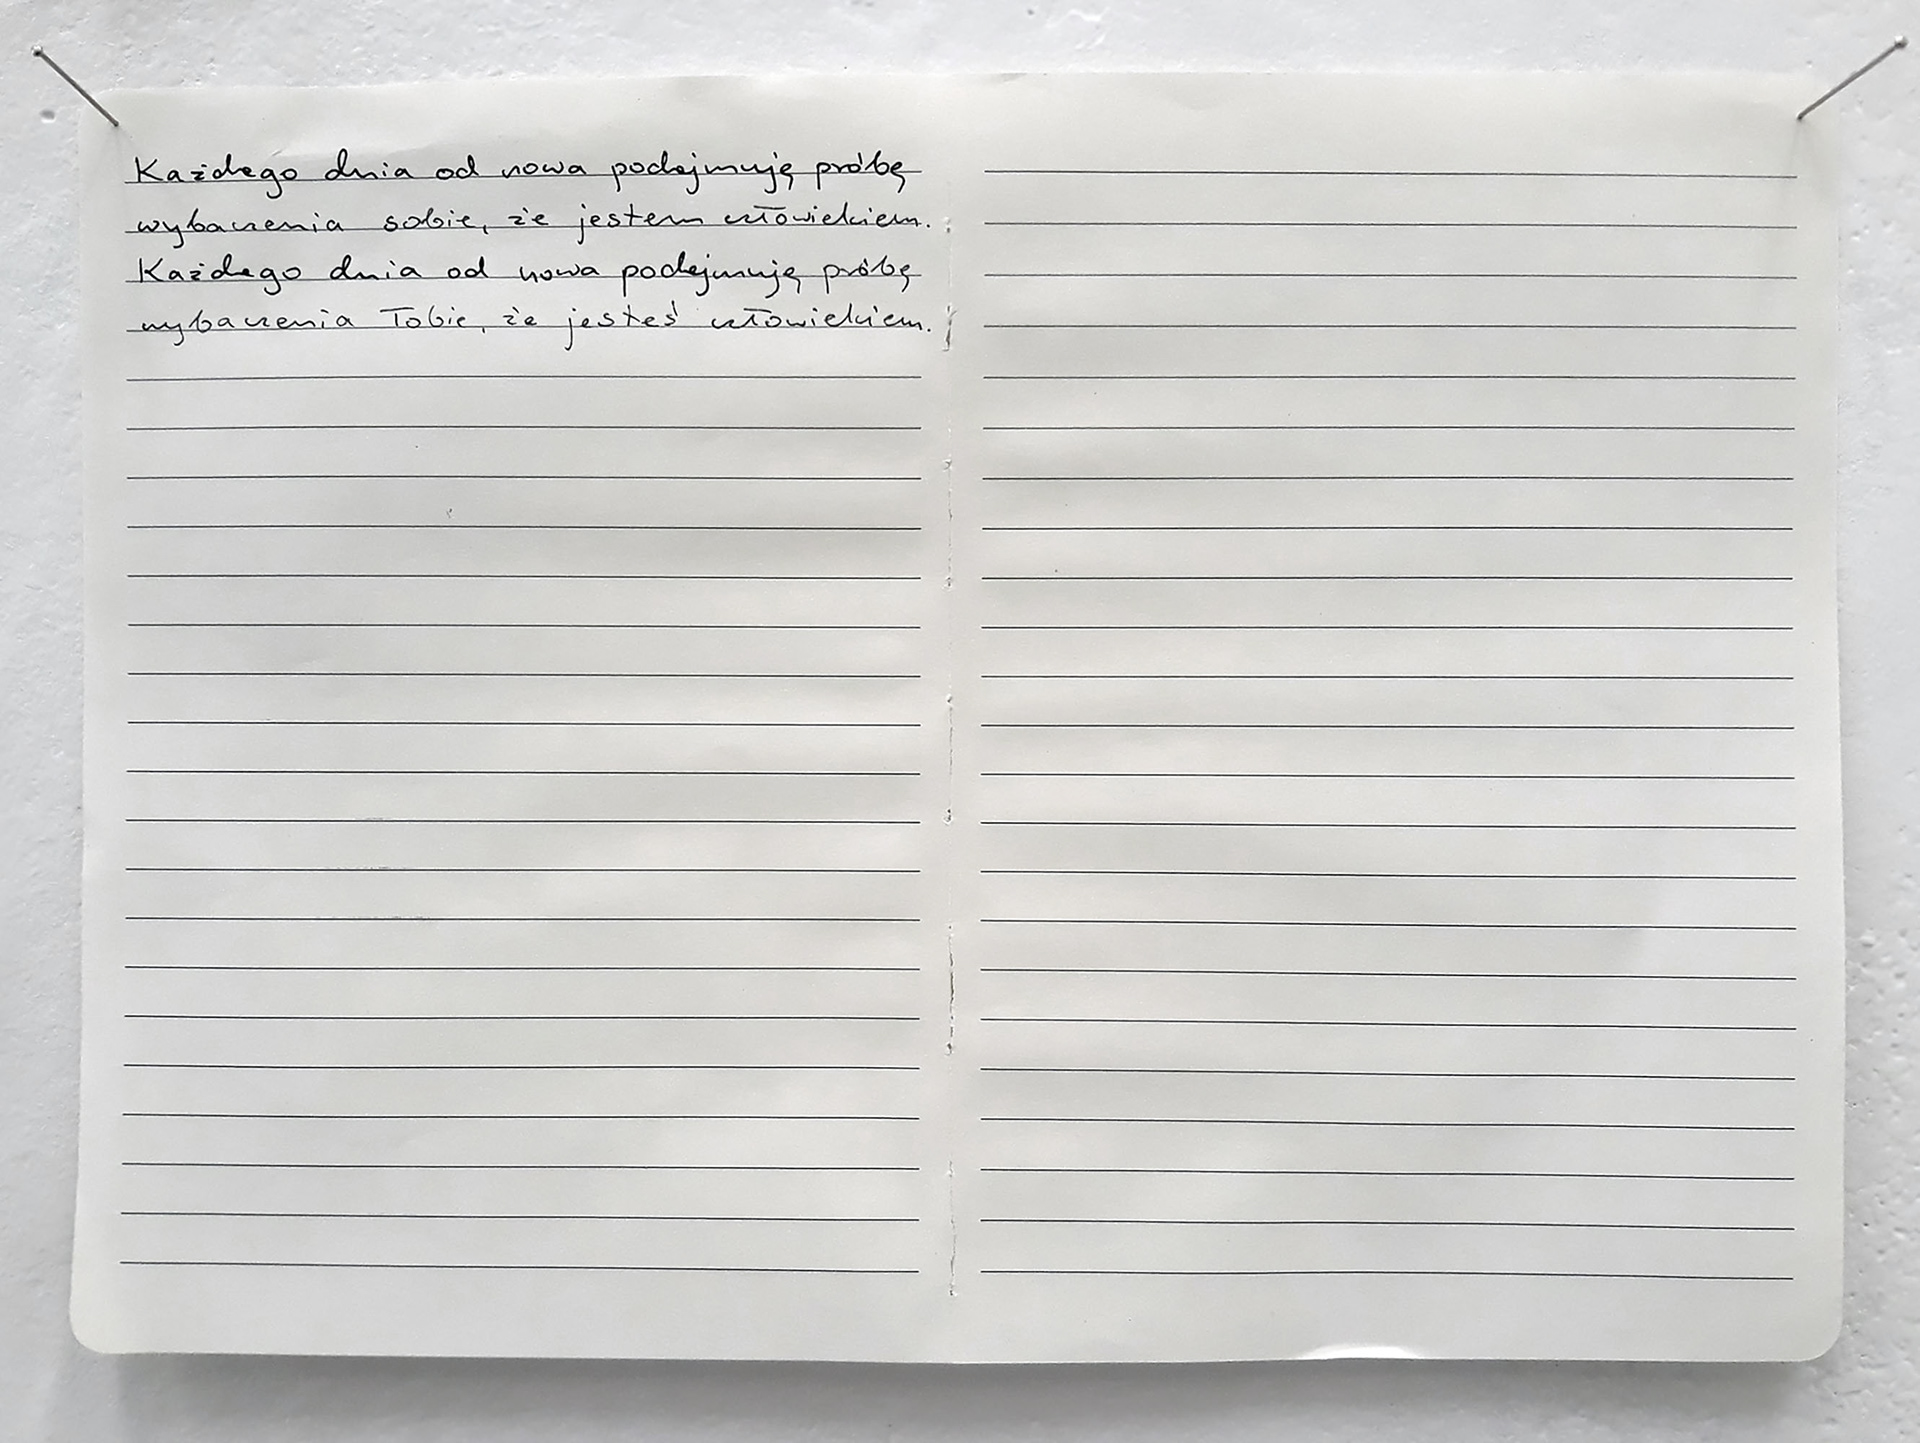 Każdego dnia od nowa podejmuję próbę
wybaczenia sobie, że jestem człowiekiem.
Każdego dnia od nowa podejmuję próbę
wybaczenia Tobie, że jesteś człowiekiem.